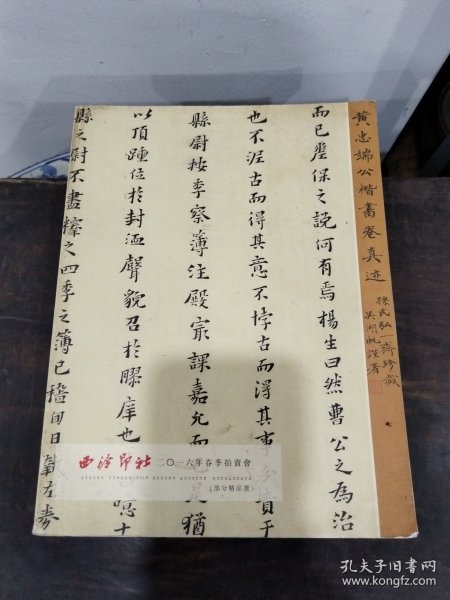 黄忠端公楷書卷真迹
徐氏弘一齋珍藏
吴湖帆證考
而已歷保之說何有焉楊生曰然曹公之為治
也不泥古而得其意不悖古而得其事
貴于
縣尉按季察薄注殿冣課嘉允而
猶
以頂踵位於封洫聲貌召於膠庠也
憶十
縣之尉不盡擇之四季之薄已稽旬日
西泠印社
二〇一六年春季拍賣會
XILING YINSHE 2016 SPRING AUCTION HIGHLIGHTS
(部分精品選)
孔夫子旧书网
www.kongfz.com